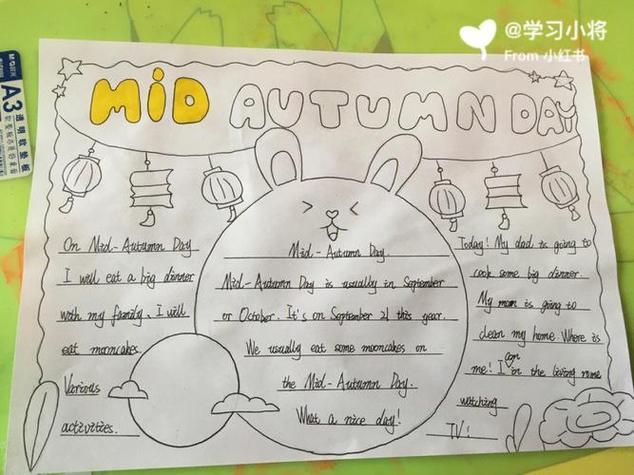 @学习小将
From 小红书
MiD AUTUMN DAY
A3
On Mid-Autumn Day
I will eat a big dinner
with my family. I will
eat mooncakes.
Various
activities.
Mid-Autumn Day.
Mid-Autumn Day is usually in September
or October. It's on September 21 this year.
We usually eat some mooncakes on
the Mid-Autumn Day.
What a nice day!
Today! My dad is going to
cook some big dinner.
My mom is going to
clean my home. Where is
me! I am in the living rome
watching
TV!